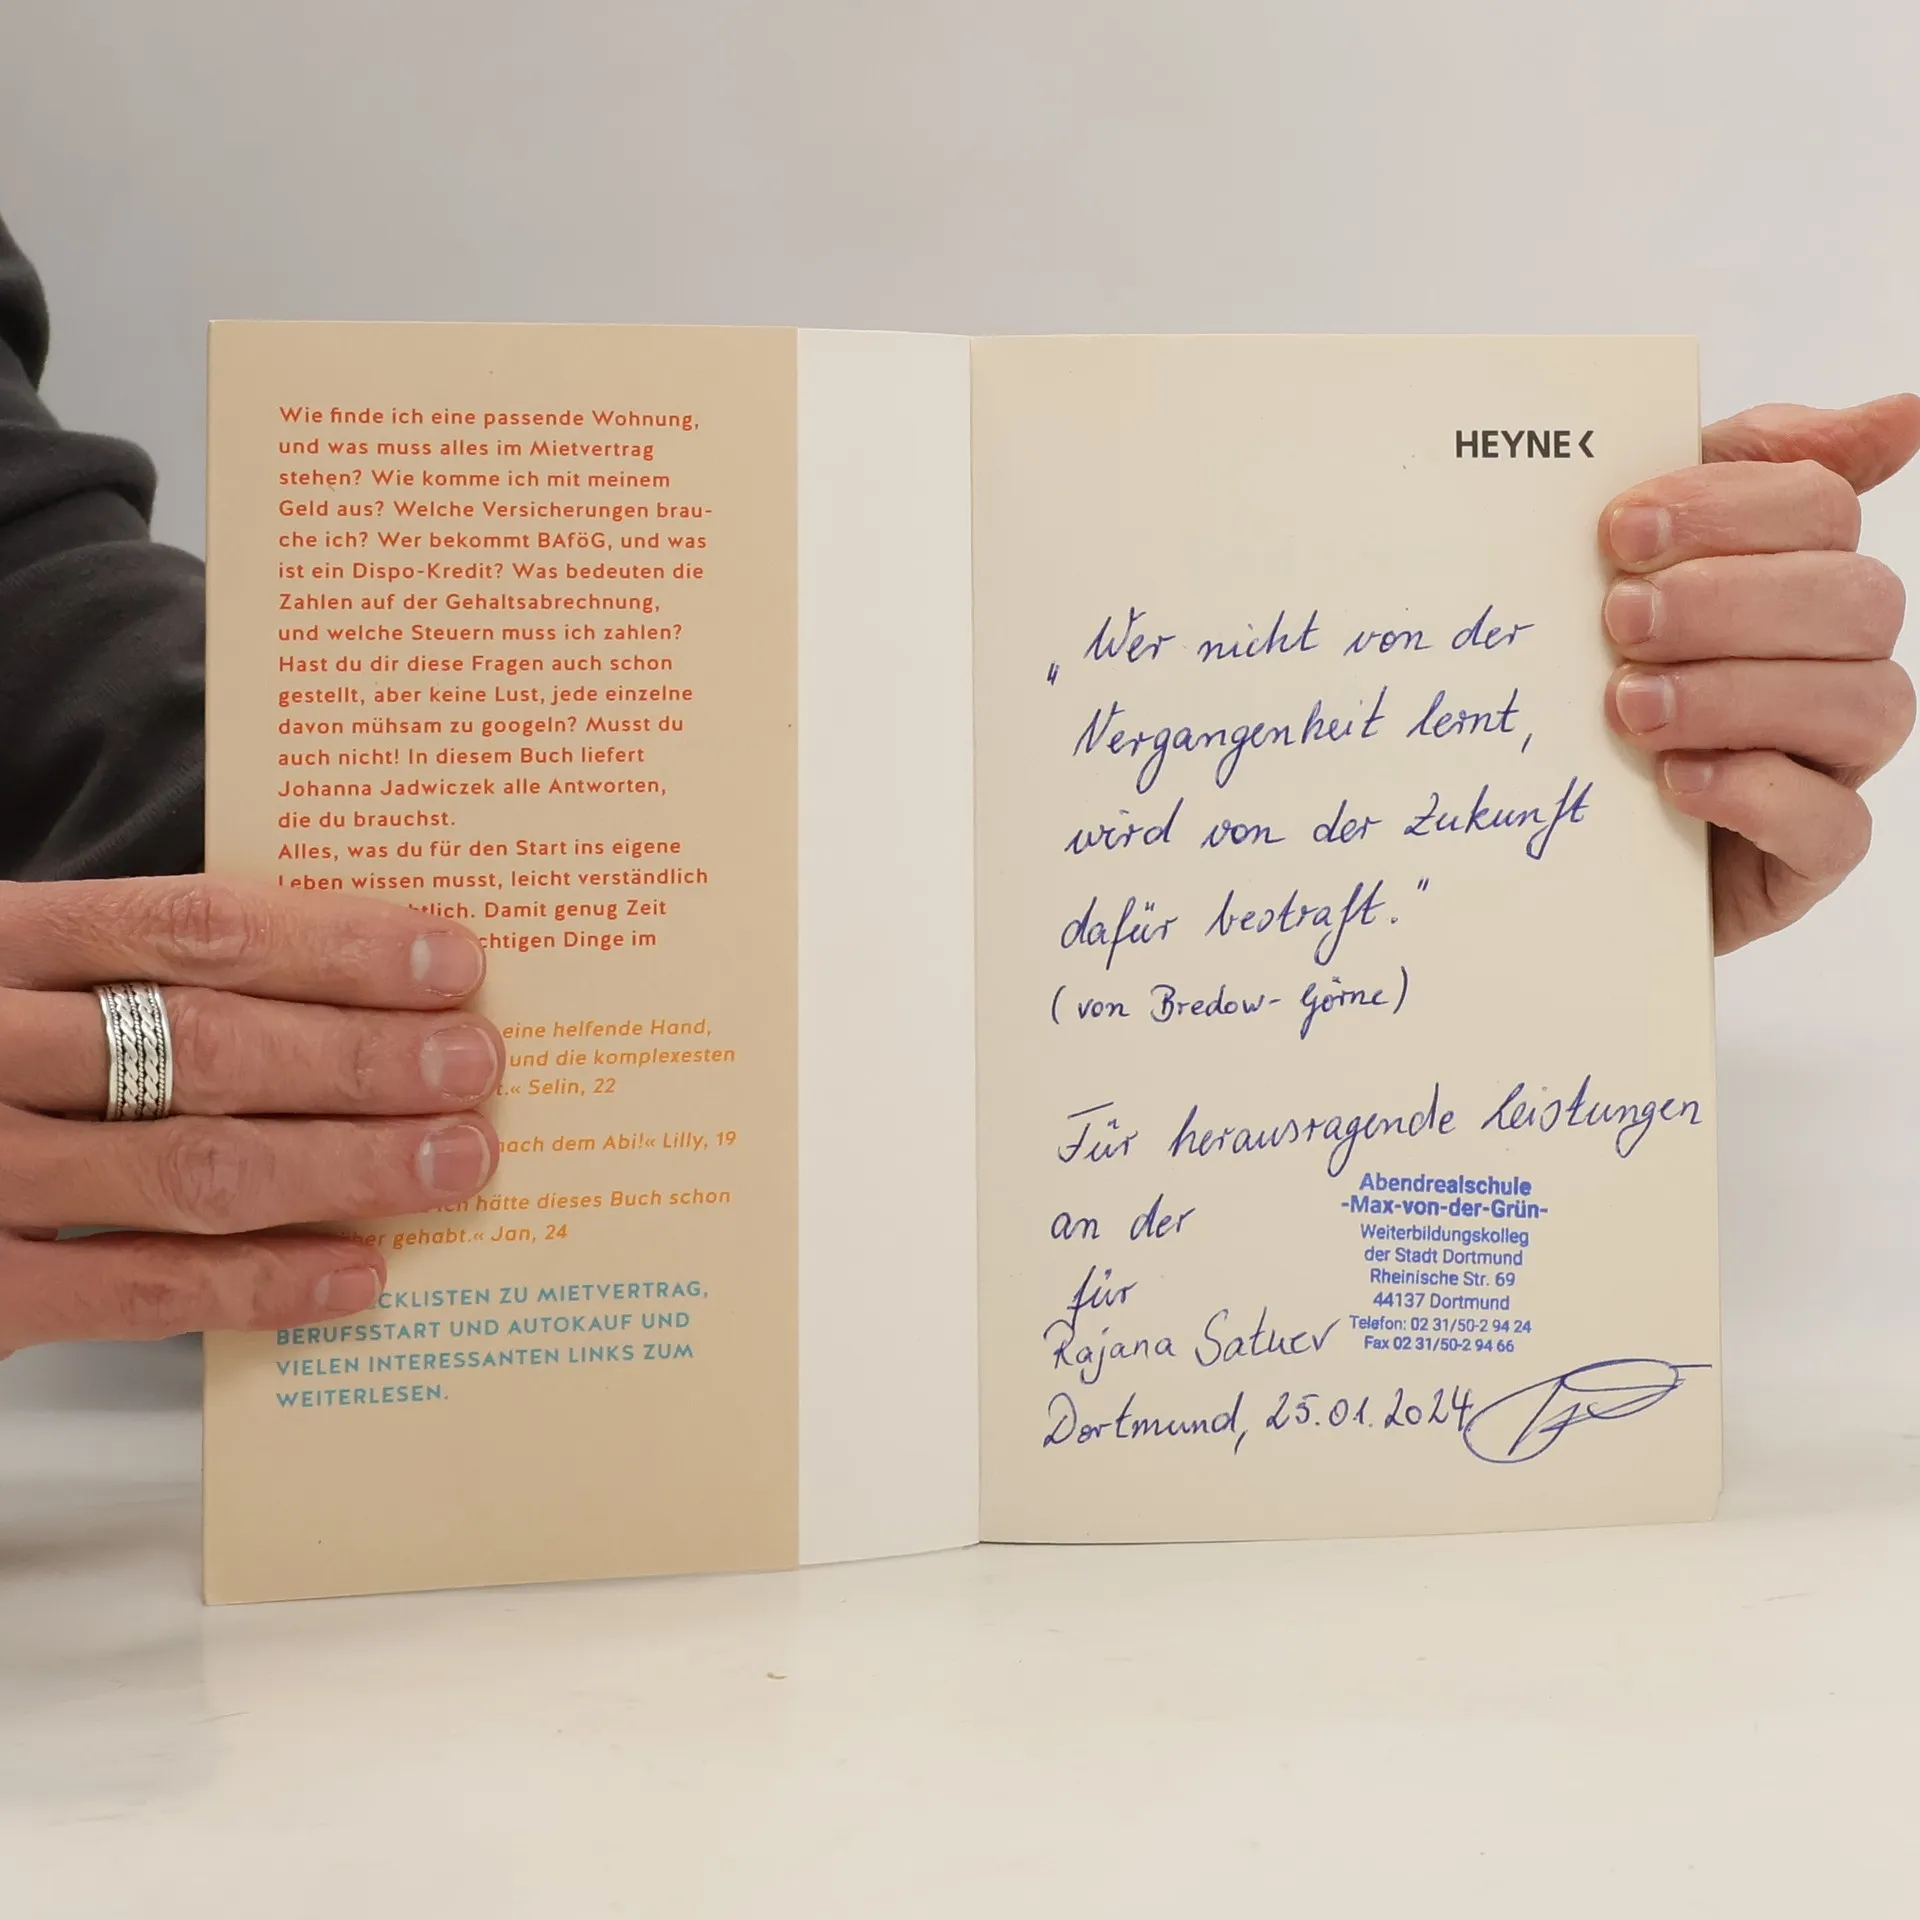 Wie finde ich eine passende Wohnung,
und was muss alles im Mietvertrag
stehen? Wie komme ich mit meinem
Geld aus? Welche Versicherungen brau-
che ich? Wer bekommt BAföG, und was
ist ein Dispo-Kredit? Was bedeuten die
Zahlen auf der Gehaltsabrechnung,
und welche Steuern muss ich zahlen?
Hast du dir diese Fragen auch schon
gestellt, aber keine Lust, jede einzelne
davon mühsam zu googeln? Musst du
auch nicht! In diesem Buch liefert
Johanna Jadwiczek alle Antworten,
die du brauchst.
Alles, was du für den Start ins eigene
Leben wissen musst, leicht verständlich
htlich. Damit genug Zeit
chtigen Dinge im
eine helfende Hand,
und die komplexesten
t.« Selin, 22
nach dem Abi!« Lilly, 19
ich hätte dieses Buch schon
her gehabt.« Jan, 24
ECKLISTEN ZU MIETVERTRAG,
BERUFSSTART UND AUTOKAUF UND
VIELEN INTERESSANTEN LINKS ZUM
WEITERLESEN.
HEYNE <
„Wer nicht von der
Vergangenheit lernt,
wird von der Zukunft
dafür bestraft."
(von Bredow-Görne)
Für herausragende Leistungen
an der
Abendrealschule
-Max-von-der-Grün-
Weiterbildungskolleg
der Stadt Dortmund
Rheinische Str. 69
44137 Dortmund
Telefon: 02 31/50-2 94 24
Fax 02 31/50-2 94 66
für
Rajana Satuev
Dortmund, 25.01.2024